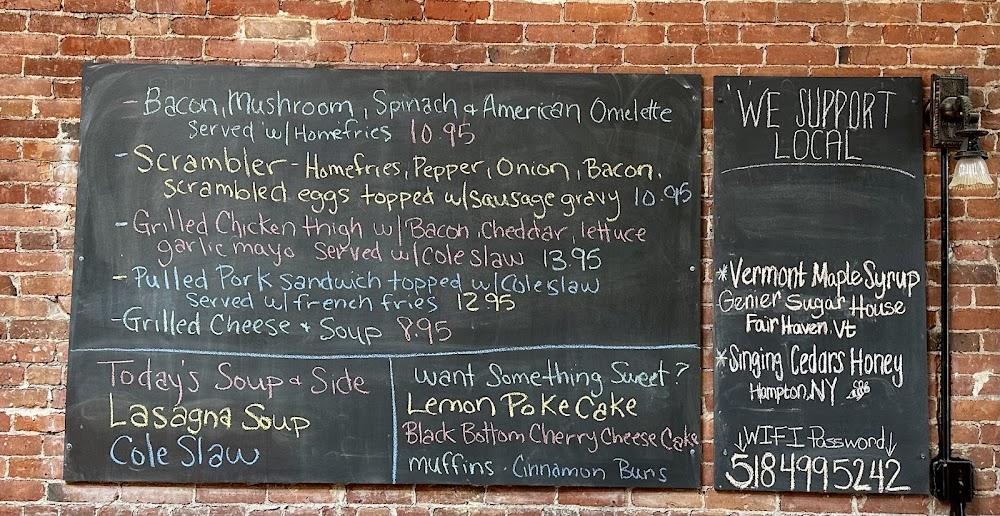 - Bacon, Mushroom, Spinach & American Omelette
Served w/ Homefries 10.95
- Scrambler - Homefries, Pepper, Onion, Bacon,
Scrambled eggs topped w/ Sausage gravy 10.95
- Grilled Chicken thigh w/ Bacon, Cheddar, lettuce
garlic mayo Served w/ Cole slaw 13.95
- Pulled Pork Sandwich topped w/ Cole slaw
Served w/ french fries 12.95
- Grilled Cheese & Soup 8.95
Today's Soup & Side
Lasagna Soup
Cole Slaw
Want Something Sweet?
Lemon Poke Cake
Black Bottom Cherry Cheese Cake
muffins - Cinnamon Buns
WE SUPPORT
LOCAL
*Vermont Maple Syrup
Genier Sugar House
Fair Haven, Vt
*Singing Cedars Honey
Hampton, NY
↓WIFI Password↓
5184995242